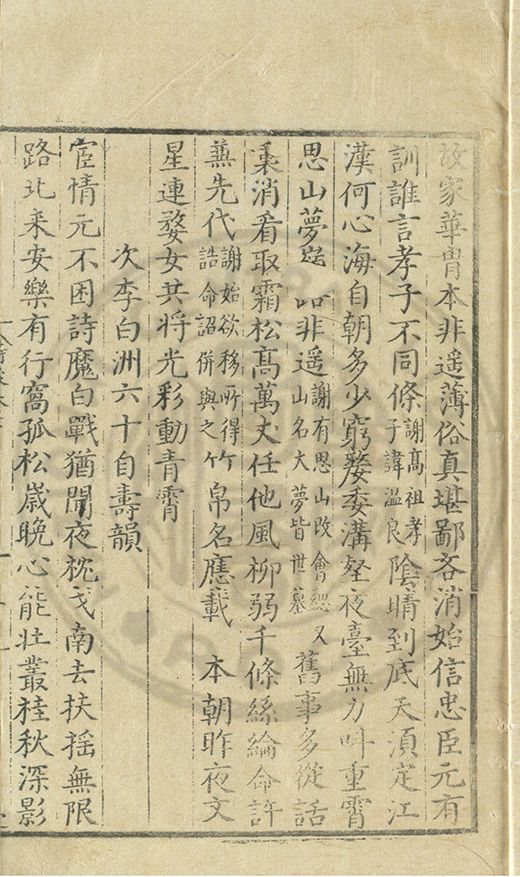 故家華冑本非遥薄俗真堪鄙吝消始信忠臣元有
訓誰言孝子不同條謝高祖孝子諱温良陰晴到底天須定江
漢何心海自朝多少窮嫠委溝壑夜臺無力呌重霄
思山夢 非遥謝有思山改會緦山名大夢皆世墓又舊事多從話
裏消看取霜松高萬丈任他風柳弱千條絲綸命許
兼先代謝始欲移所得誥命詔併與之竹帛名應載 本朝昨夜文
星連婺女共將光彩動青霄
次李白洲六十自壽韻
宦情元不困詩魔白戰猶聞夜枕戈南去扶揺無限
路北来安樂有行窩孤松嵗晚心能壮叢桂秋深影